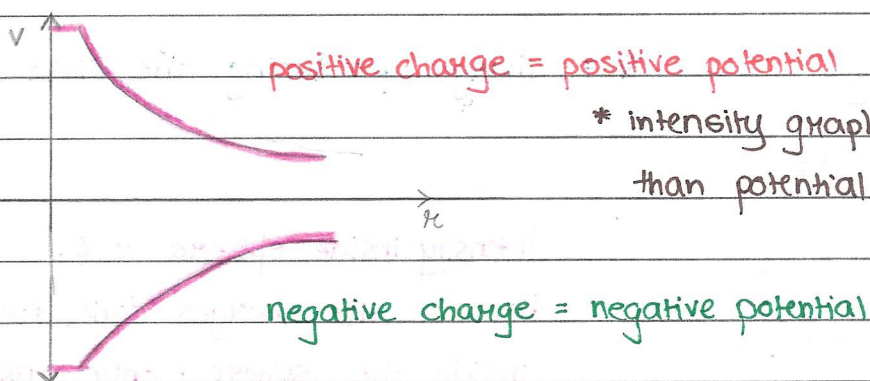 V
positive charge = positive potential
* intensity grap
than potential
r
negative charge = negative potential